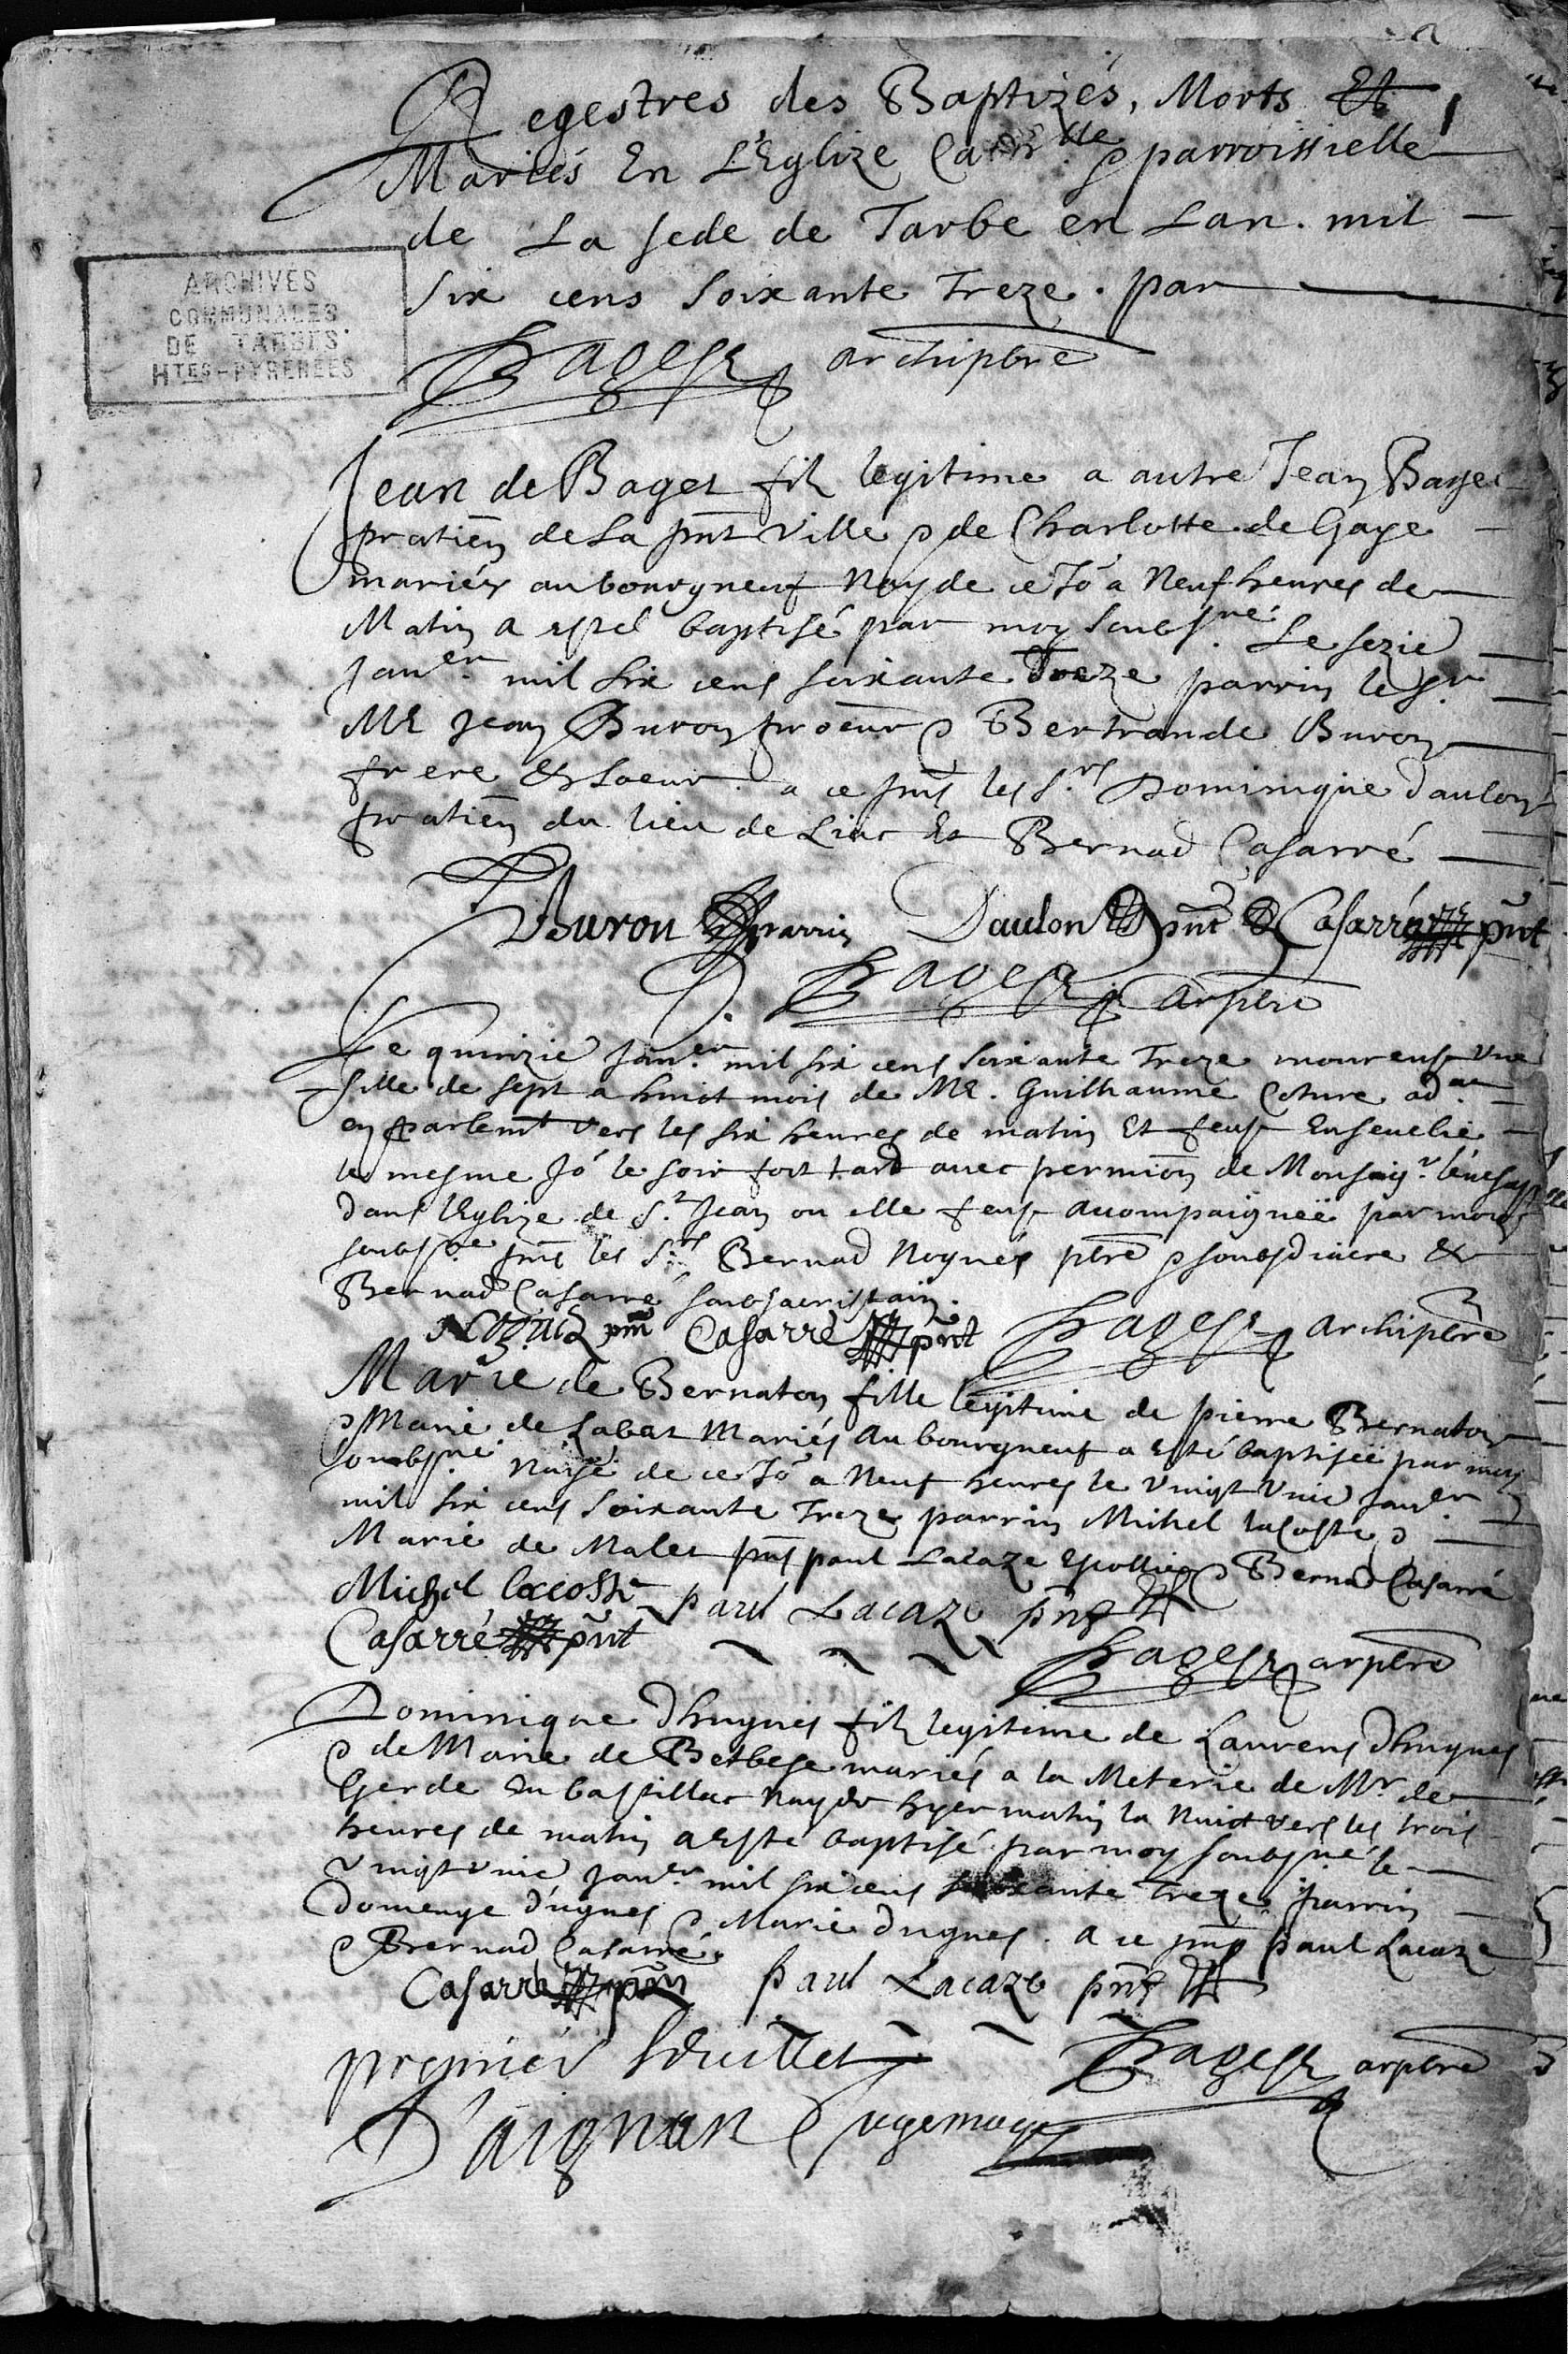 Regestres des Baptizés, Morts Et
Mariés En L'Eglize Cathlle & parroissielle
de La sede de Tarbe en Lan. mil
six cens soixante Treze. par
ARCHIVES
COMMUNALES
DE TARBES
HTES-PYRENEES
archipbre
Jean de Baget filz legitime a autre Jean Baget
pratien de La pnt ville & de Charlotte de Gaye
mariés au bourgneuf Nay de ce Jo a Neuf heures de
Matin a esté baptisé par moy soubsne. Le sezie
Janer. mil six cens soixante Treze parrin le Sr.
Me Jean Buron procur & Bertrande Buron
frere Et soeur. a ce pnts les Srs Dominique daulon
pratien du lieu de Liac Et Bernad Casarré
Buron parrin Daulon pnt Casarré pnt
arpbre
Le quinzie Janer. mil six cens soixante Treze moureust une
fille de sept a huict mois de Me. Guilhaume Coture adat
en parlemt vers les six heures de matin Et feust Enseuelie
le mesme Jo le soir fort tard auec permion de Monseigr. leuesq
dans l'Eglize de St. Jean ou elle feust accompaigneë par moy
soubsne pnts les Srs Bernad Nogués pbre & soubsdiacre &
Bernad Casarré soubsacristain.
Nogués pnt Casarré pnt archipbre
Marie de Bernaton fille legitime de pierre Bernaton
& Marie de Labat Mariés au bourgneuf a Esté baptiseë par moy
soubsne. naise de ce Jo a Neuf heures le vingt unie Janer.
mil six cens soixante Treze parrin Michel lacoste &
Marie de Malet pnts paul Lacaze & Bernad Casarré
Michel lacoste paul Lacaze pnt
Casarré pnt
arpbre
Dominique dhugues filz legitime de Laurens dhugues
& de Marie de Betbese mariés a la Meterie de Mr. de
Gerde En bastillac nay de hyer matin la nuict vers les trois
heures de matin a Este baptisé par moy soubsne le
vingt unie Janer. mil six cens soixante Treze parrin
Domenge dugues & Marie dugues. a ce pnts paul Lacaze
& Bernad Casarré.
Casarré pnt paul Lacaze pnt
premier feuillet arpbre
D'aignan Jugemage